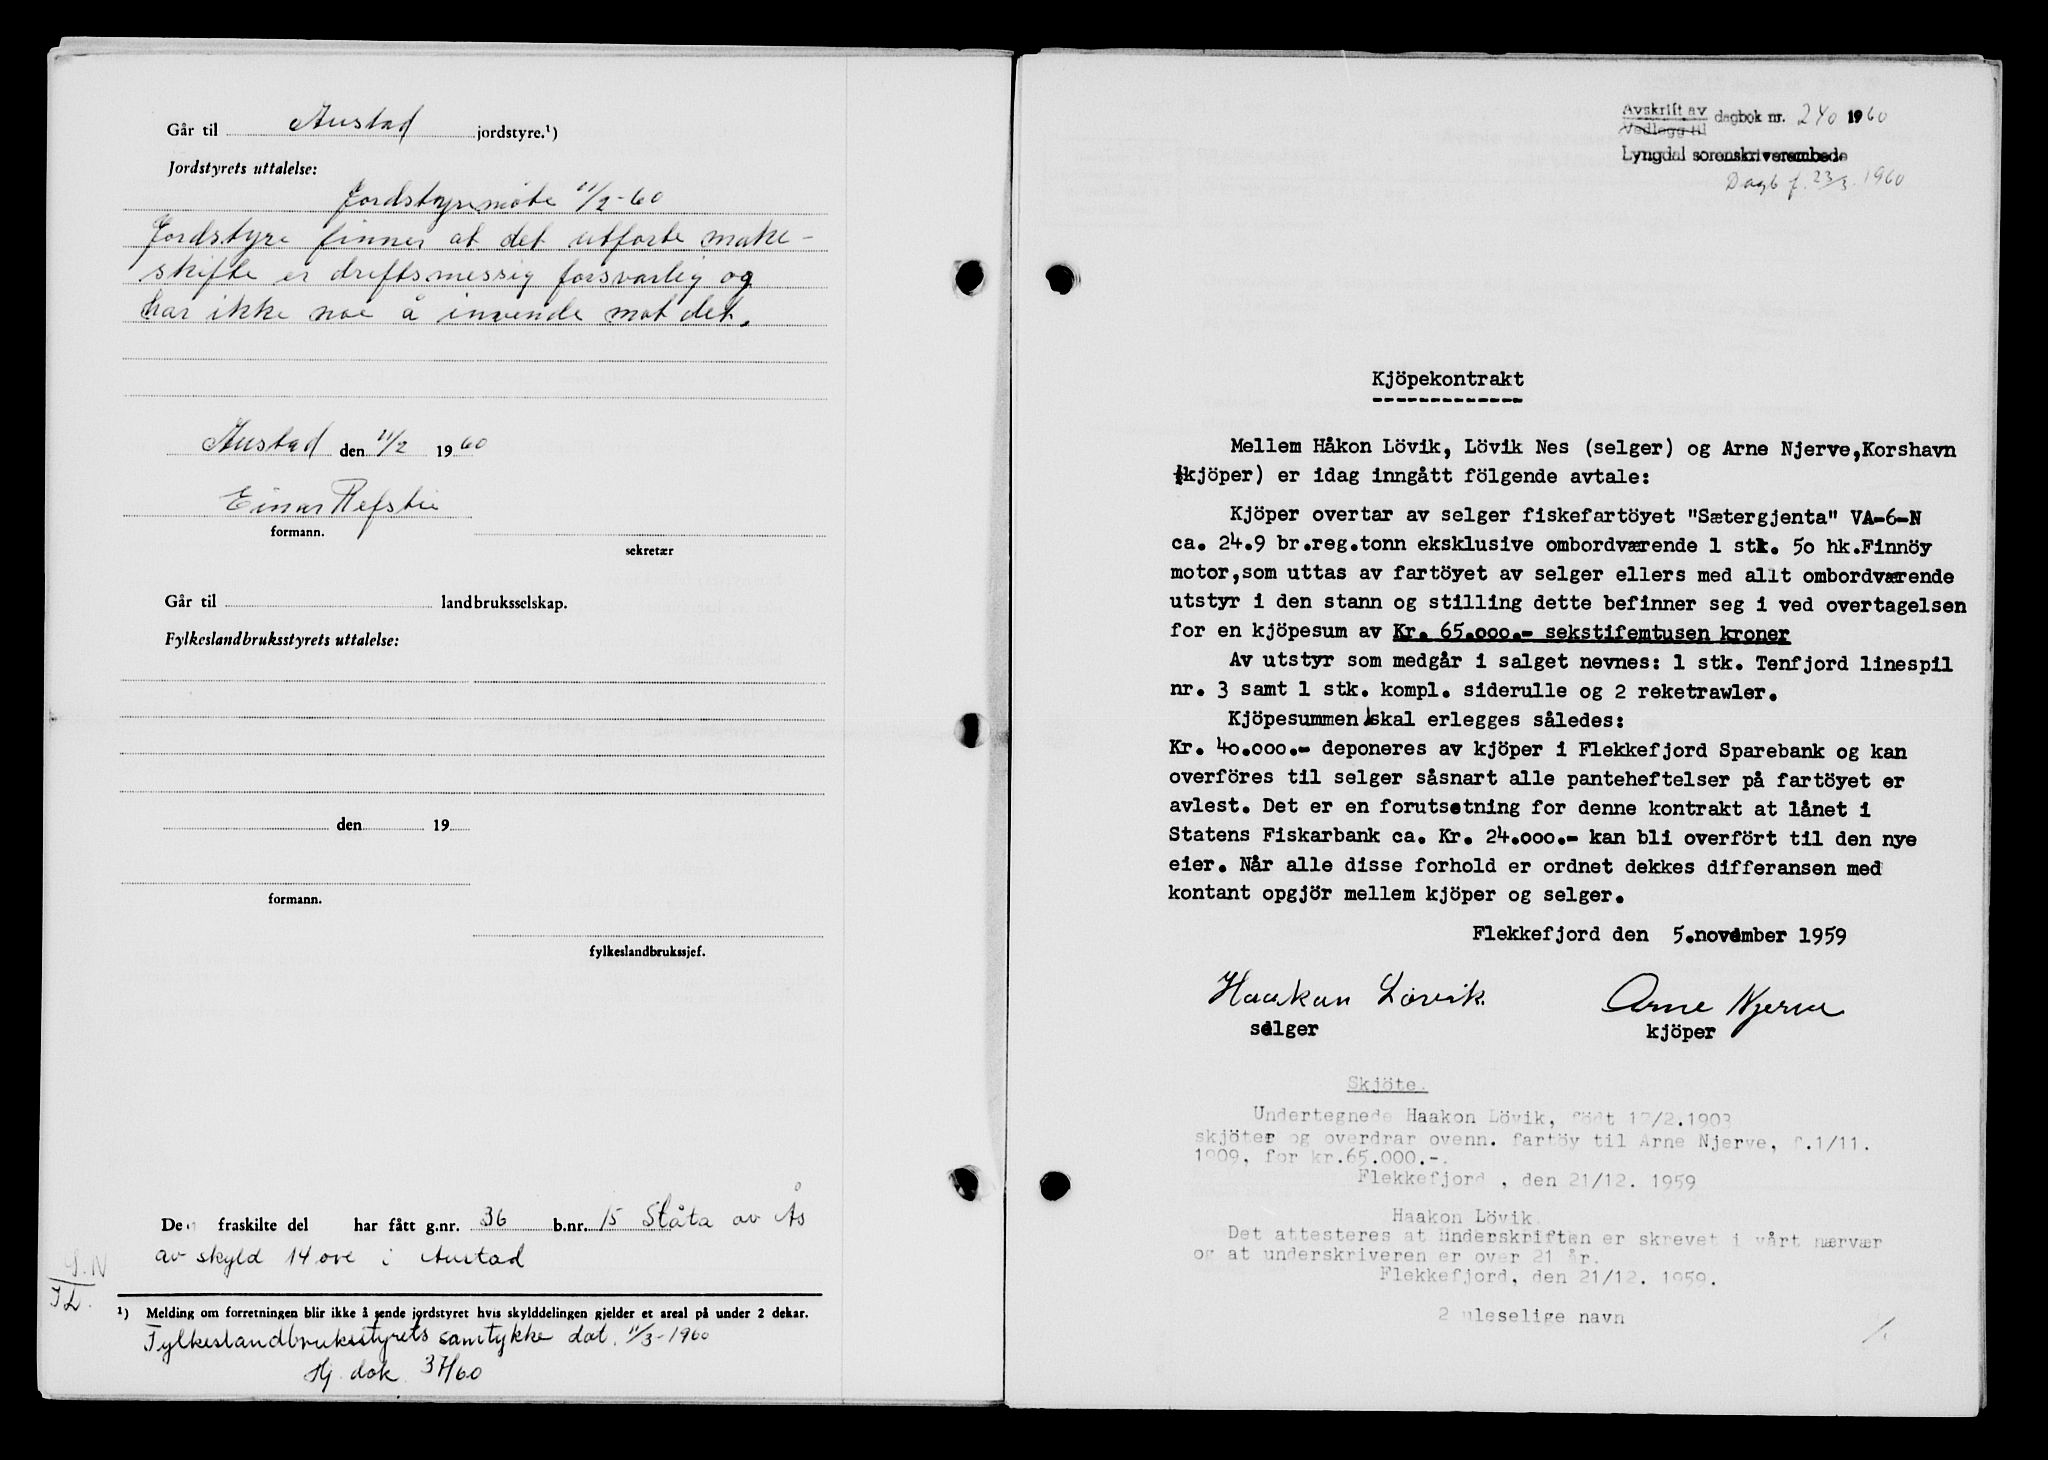 Går til Austad jordstyre.¹)
Jordstyrets uttalelse:
Jordstyremöte 11/2-60
Jordstyre finner at det utförte make-
skifte er driftsmessig forsvarlig og
har ikke noe å invende mot det.
Austad den 11/2 1960
Einar Refstie
formann.
sekretær
Går til landbruksselskap.
Fylkeslandbruksstyrets uttalelse:
den 19
formann.
fylkeslandbrukssjef.
Den fraskilte del har fått g.nr. 36 b.nr. 15 Slåta av Ås
av skyld 14 øre i Austad
S.N
¹) Melding om forretningen blir ikke å sende jordstyret hvis skylddelingen gjelder et areal på under 2 dekar.
Fylkeslandbruksstyrets samtykke dat. 11/3-1960
Hj. dok. 37/60
Avskrift av
Vedlegg til dagbok nr. 240 1960
Lyngdal sorenskriverembede
Dagb f. 23/3. 1960
Kjöpekontrakt
Mellem Håkon Lövik, Lövik Nes (selger) og Arne Njerve,Korshavn
(kjöper) er idag inngått fölgende avtale:
Kjöper overtar av selger fiskefartöyet "Sætergjenta" VA-6-N
ca. 24.9 br.reg.tonn eksklusive ombordværende 1 stk. 50 hk.Finnöy
motor,som uttas av fartöyet av selger ellers med allt ombordværende
utstyr i den stann og stilling dette befinner seg i ved overtagelsen
for en kjöpesum av Kr. 65.000.- sekstifemtusen kroner
Av utstyr som medgår i salget nevnes: 1 stk. Tenfjord linespil
nr. 3 samt 1 stk. kompl. siderulle og 2 reketrawler.
Kjöpesummen skal erlegges således:
Kr. 40.000.- deponeres av kjöper i Flekkefjord Sparebank og kan
overföres til selger såsnart alle panteheftelser på fartöyet er
avlest. Det er en forutsetning for denne kontrakt at lånet i
Statens Fiskarbank ca. Kr. 24.000.- kan bli overfört til den nye
eier. Når alle disse forhold er ordnet dekkes differansen med
kontant opgjör mellem kjöper og selger.
Flekkefjord den 5.november 1959
Haakon Lövik Arne Njerve
selger kjöper
Skjöte.
Undertegnede Haakon Lövik, född 17/2.1903
skjöter og overdrar ovenn. fartöy til Arne Njerve, f.1/11.
1909, for kr.65.000.-.
Flekkefjord , den 21/12. 1959
Haakon Lövik.
Det attesteres at underskriften er skrevet i vårt nærvær
og at underskriveren er over 21 år.
Flekkefjord, den 21/12. 1959.
2 uleselige navn